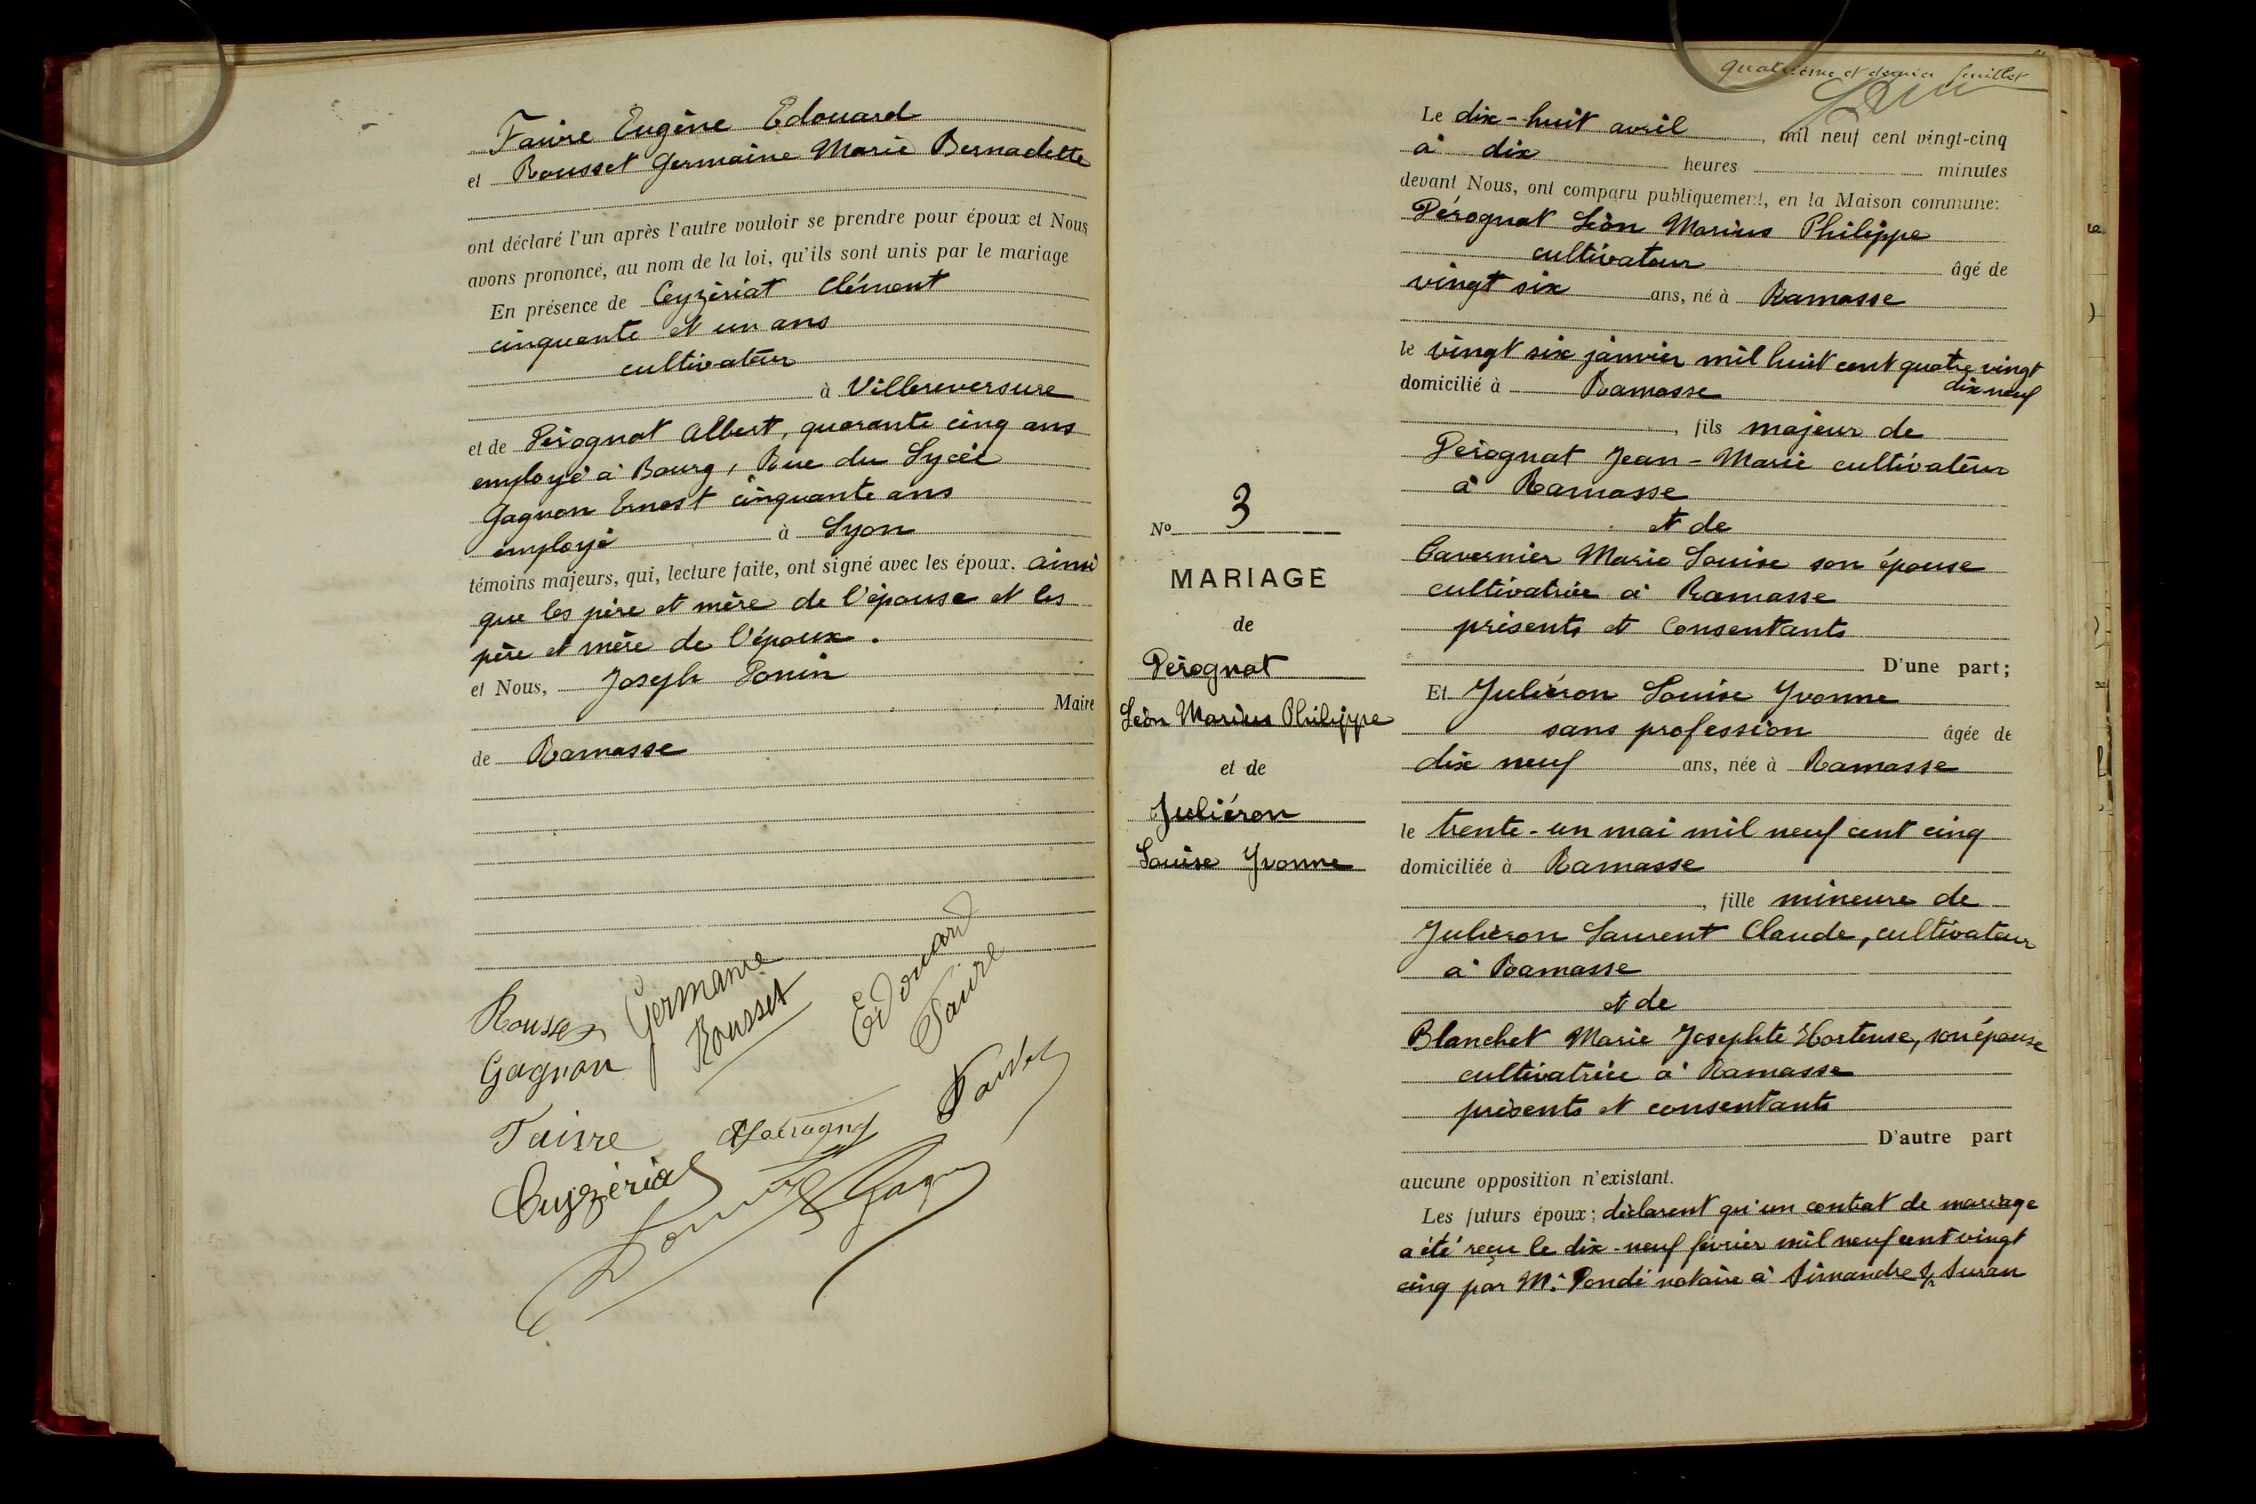 Faivre Eugène Edouard
et Rousset Germaine Marie Bernadette
ont déclaré l'un après l'autre vouloir se prendre pour époux et Nous
avons prononcé, au nom de la loi, qu'ils sont unis par le mariage
En présence de Ceyzériat Clément
cinquante et un ans
cultivateur
à Villereversure
et de Pérognat Albert, quarante cinq ans
employé à Bourg, Rue du Lycée
Gagnon Ernest cinquante ans
employé à Lyon
témoins majeurs, qui, lecture faite, ont signé avec les époux. ainsi
que les père et mère de l'épouse et les
père et mère de l'époux.
et Nous, Joseph Ponin
Maire
de Ramasse
Rousset
Germaine
Rousset
Edouard
Faivre
Gagnon
Faivre
Ceyzériat
quatrième et dernier feuillet
Le dix-huit avril, mil neuf cent vingt-cinq
à dix heures minutes
devant Nous, ont comparu publiquement, en la Maison commune:
Pérognat Léon Marius Philippe
cultivateur âgé de
vingt six ans, né à Ramasse
le vingt six janvier mil huit cent quatre vingt
dix neuf
domicilié à Ramasse
, fils majeur de
Pérognat Jean-Marie cultivateur
à Ramasse
et de
Cavernier Marie Louise son épouse
cultivatrice à Ramasse
présents et consentants
D'une part;
Et Juliéron Louise Yvonne
sans profession âgée de
dix neuf ans, née à Ramasse
le trente-un mai mil neuf cent cinq
domiciliée à Ramasse
, fille mineure de
Juliéron Laurent Claude, cultivateur
à Ramasse
et de
Blanchet Marie Josephte Hortense, son épouse
cultivatrice à Ramasse
présents et consentants
D'autre part
aucune opposition n'existant.
Les futurs époux; déclarent qu'un contrat de mariage
a été reçu le dix-neuf février mil neuf cent vingt
cinq par Me Pondé notaire à Simandre s/ Suran
No 3
MARIAGE
de
Pérognat
Léon Marius Philippe
et de
Juliéron
Louise Yvonne